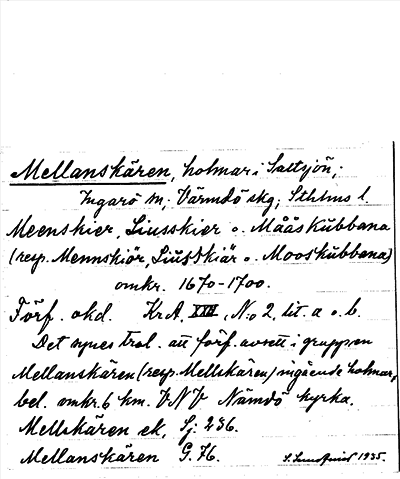 Mellanskären, holmar i Saltsjön,
Ingarö sn, Värmdö skg, Sthlms l.
Meenskier, Liusskier o. Mååskubbana
(resp. Mennskiör, Liusskiär o. Mooskubbana)
omkr. 1670-1700.
Förf. okd. KrA, XVII, No 2, lit. a o. b.
Det synes trol. att förf. avsett i gruppen
Mellanskären (resp. Mellskären) ingående holmar,
bel. omkr. 6 km. VNV Nämdö kyrka.
Mellskären ek. Sj. 236.
Mellanskären G. 76.
1935.